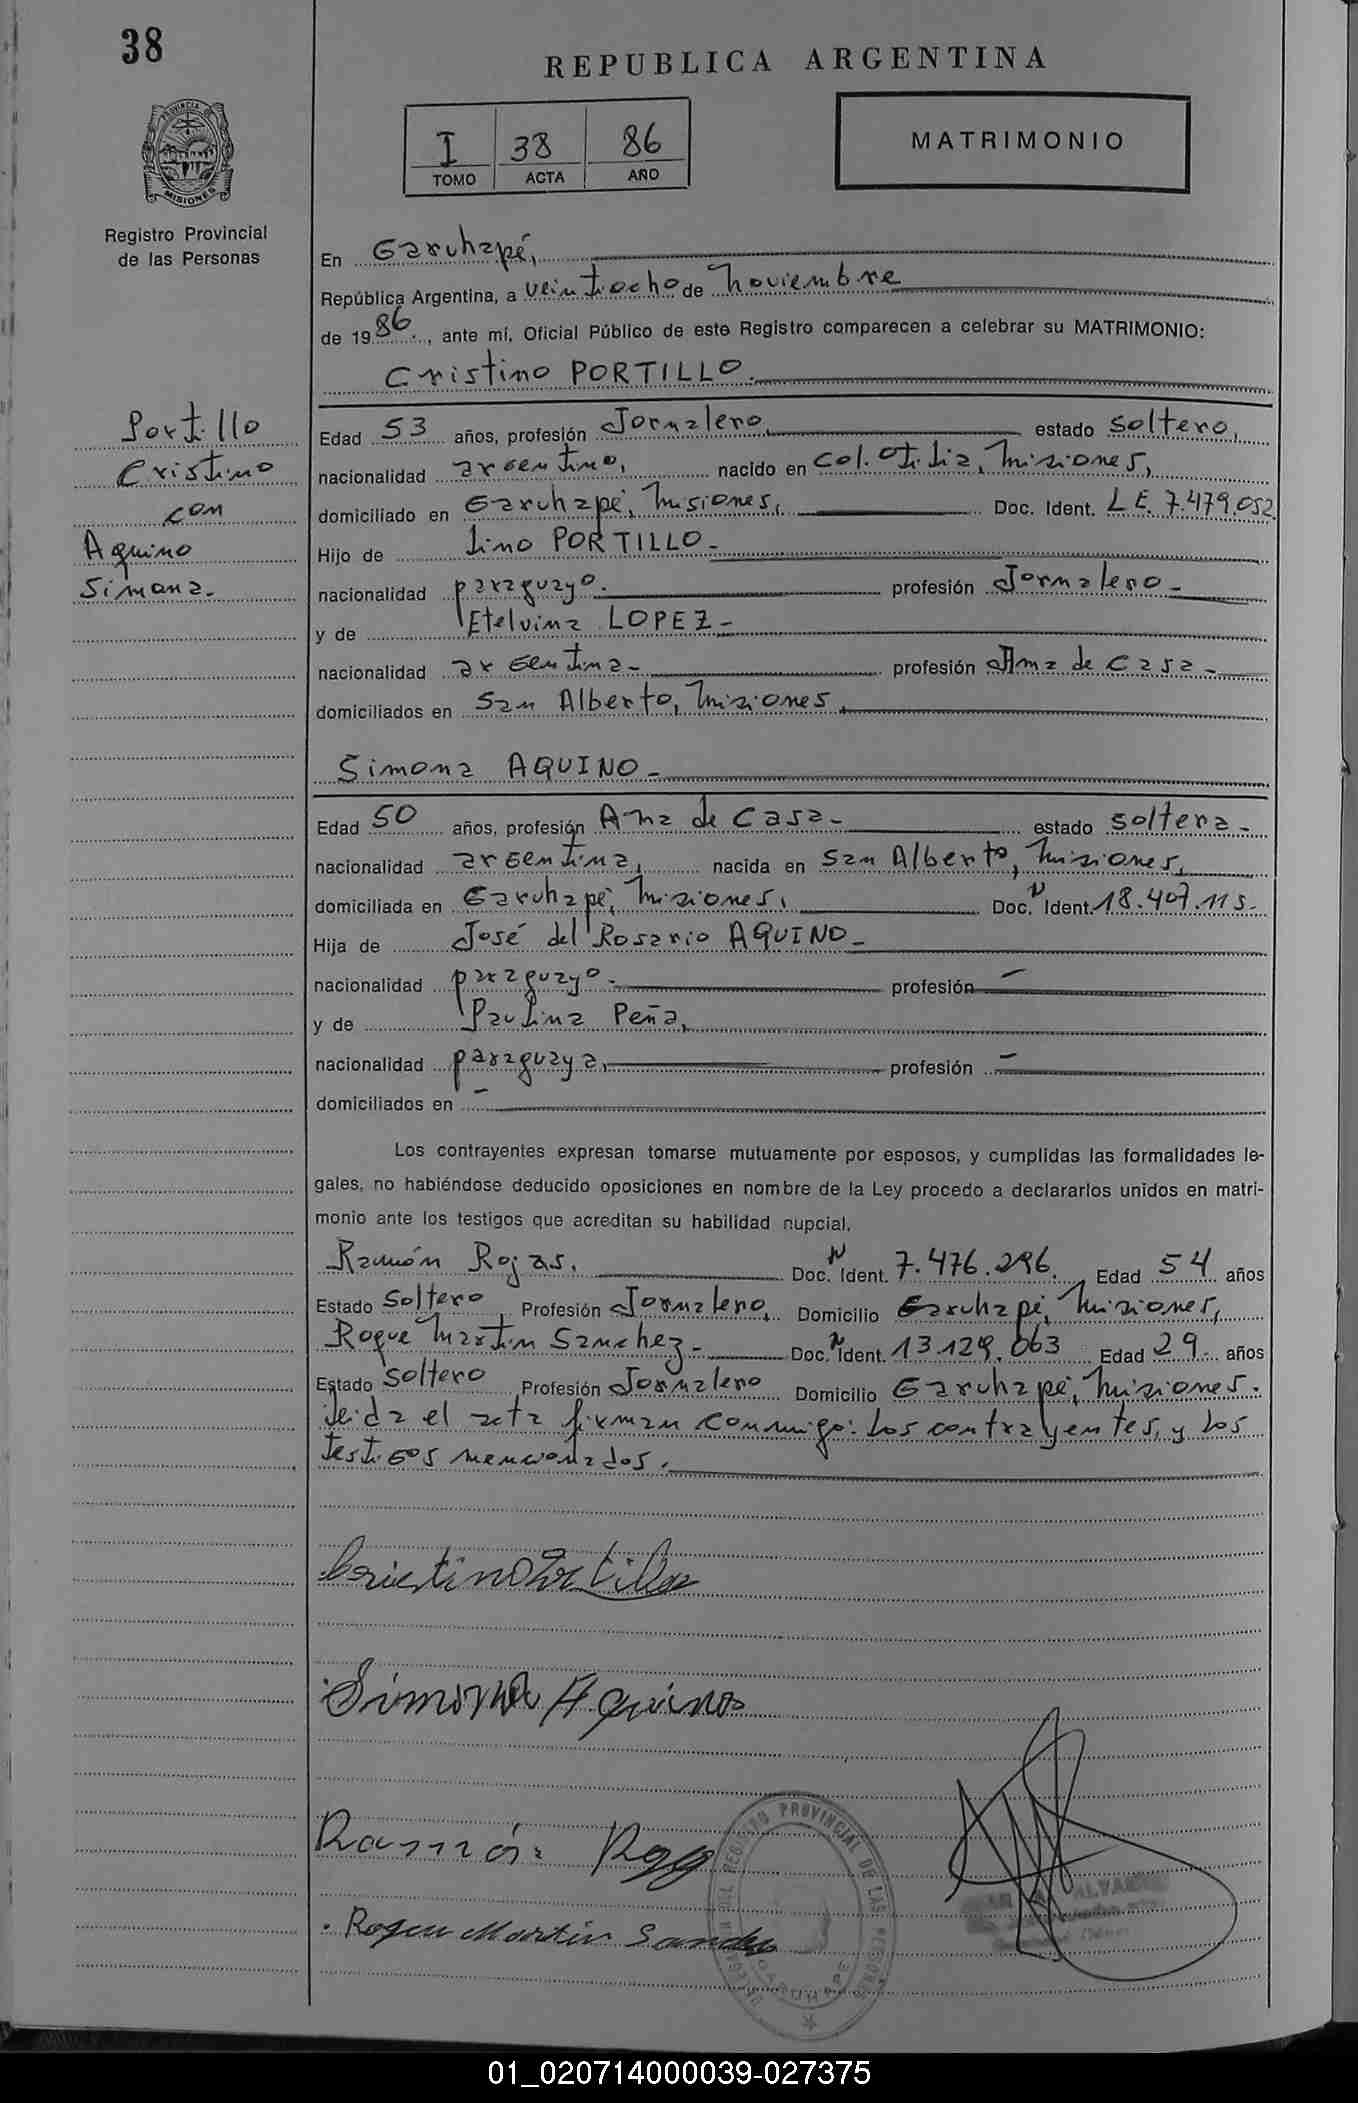 38
REPUBLICA ARGENTINA
PROVINCIA
MISIONES
I 38 86
TOMO ACTA AÑO
MATRIMONIO
Registro Provincial
de las Personas
En Garuhapé,
República Argentina, a veintiocho de noviembre
de 1986, ante mí, Oficial Público de este Registro comparecen a celebrar su MATRIMONIO:
Cristino PORTILLO.
Portillo
Cristino
con
Aquino
Simona.
Edad 53 años, profesión Jornalero, estado soltero,
nacionalidad argentino, nacido en Col. Otilia, Misiones,
domiciliado en Garuhapé, Misiones, Doc. Ident. L.E. 7.479.052
Hijo de Lino PORTILLO-
nacionalidad paraguayo. profesión Jornalero-
y de Etelvina LOPEZ-
nacionalidad argentina- profesión Ama de Casa-
domiciliados en San Alberto, Misiones,
Simona AQUINO-
Edad 50 años, profesión Ama de Casa- estado soltera-
nacionalidad argentina, nacida en San Alberto, Misiones,
domiciliada en Garuhapé, Misiones, Doc. N Ident. 18.407.115-
Hija de José del Rosario AQUINO-
nacionalidad paraguayo- profesión -
y de Paulina Peña,
nacionalidad paraguaya, profesión -
domiciliados en -
Los contrayentes expresan tomarse mutuamente por esposos, y cumplidas las formalidades le-
gales, no habiéndose deducido oposiciones en nombre de la Ley procedo a declararlos unidos en matri-
monio ante los testigos que acreditan su habilidad nupcial.
Ramón Rojas. Doc. N Ident. 7.476.296. Edad 54 años
Estado Soltero Profesión Jornalero, Domicilio Garuhapé, Misiones,
Roque Martin Sanchez- Doc. N Ident. 13.129.063 Edad 29- años
Estado soltero Profesión Jornalero Domicilio Garuhapé, Misiones.
Leida el acta firman conmigo: los contrayentes, y los
testigos mencionados.
Cristino Portillo
Simona Aquino
Ramón Roja
Roque Martin Sanchez
REGISTRO PROVINCIAL DE LAS PERSONAS
GARUHAPE
01_020714000039-027375